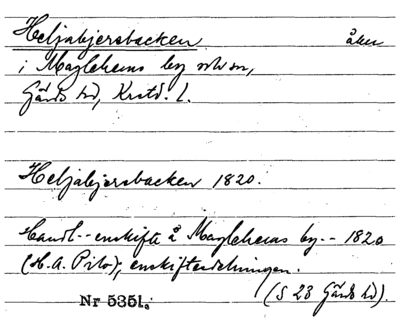 Heljabjersbacken åker
i Maglehems by och sn,
Gärds hd, Krstd. l.
Heljabjersbacken 1820.
Handl.-- enskifte å Maglehems by.-- 1820
(H.A. Pilo); enskiftesdelningen.
(S 23 Gärds hd).
Nr 5351.